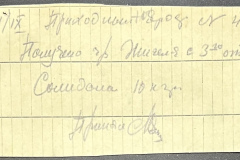 /IX Приходный Ордер № 4
Получено гр. с 3го
Солидола 10 кгр.
Принял